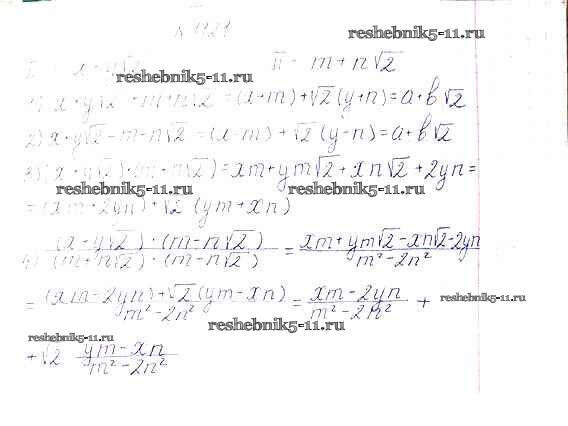 № 1121 reshebnik5-11.ru
I - x+y√2 II - m+n√2
reshebnik5-11.ru
1) x+y√2+m+n√2=(x+m)+√2(y+n)=a+b√2
2) x+y√2-m-n√2=(x-m)+√2(y-n)=a+b√2
3) (x+y√2)·(m+n√2)=xm+ym√2+xn√2+2yn=
reshebnik5-11.ru reshebnik5-11.ru
=(xm+2yn)+√2(ym+xn)
4) (x+y√2)·(m-n√2) / (m+n√2)·(m-n√2) = xm+ym√2-xn√2-2yn / m²-2n²
= (xm-2yn)+√2(ym-xn) / m²-2n² = xm-2yn / m²-2n² + reshebnik5-11.ru
reshebnik5-11.ru reshebnik5-11.ru
+√2 ym-xn / m²-2n²